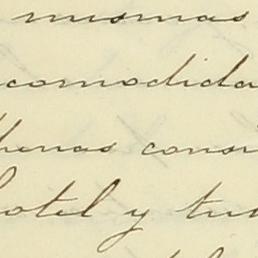 mismas
comodida
henas consi
hotel y tu